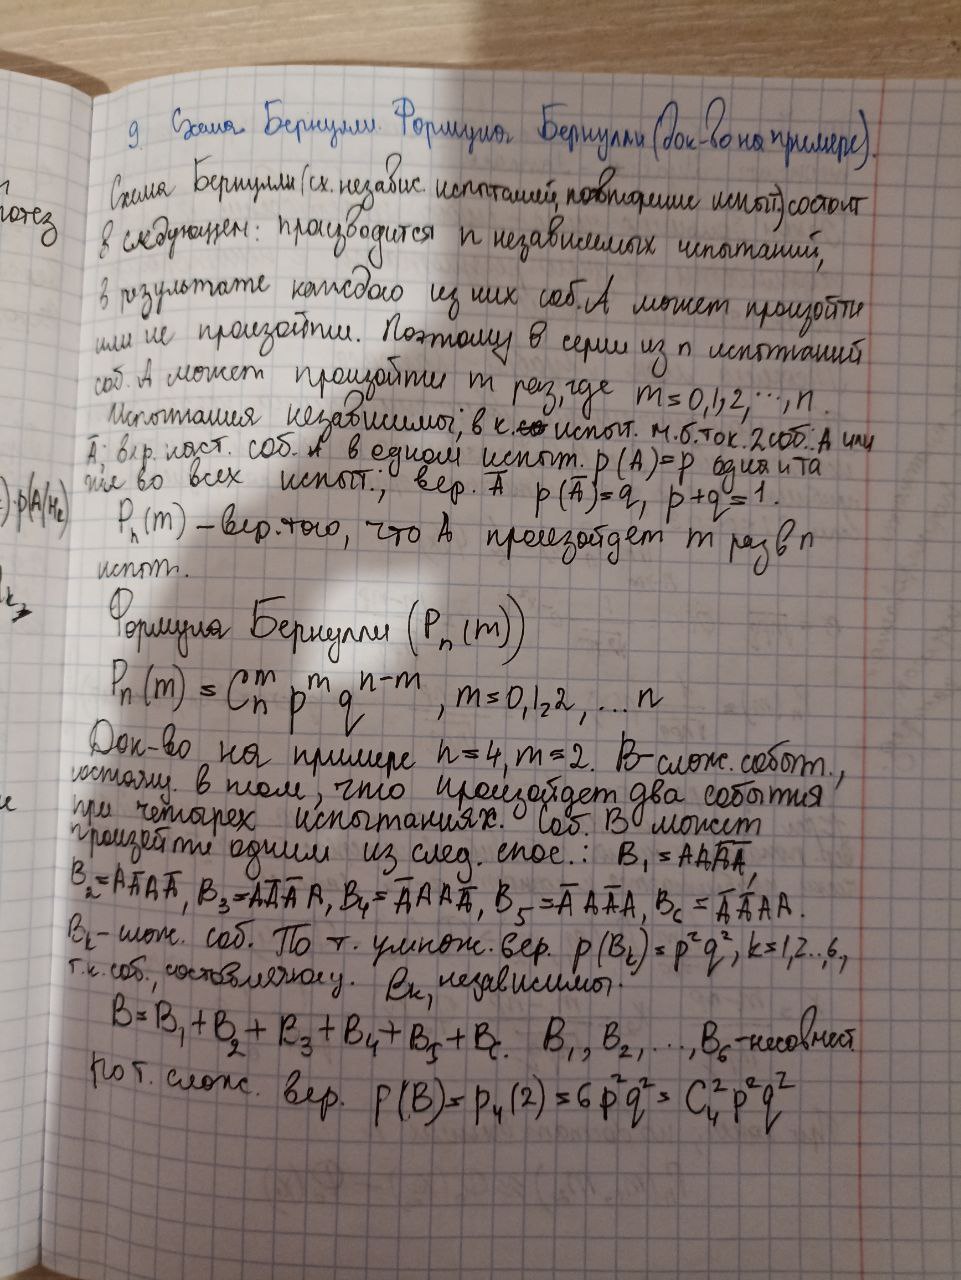 9. Схема Бернулли. Формула Бернулли (док-во на примере).
Схема Бернулли (сх. независ. испытаний, повторение испыт) состоит
в следующем: производится n независимых испытаний,
в результате каждого из них соб. A может произойти
или не произойти. Поэтому в серии из n испытаний
соб. A может произойти m раз, где m=0,1,2,...,n.
Испытания независимы; в к. испыт. м.б. ток. 2 соб.: A или
A̅; вер. наст. соб. A в одном испыт. p(A)=p одна и та
же во всех испыт.; вер. A̅ p(A̅)=q, p+q=1.
Pₙ(m) – вер. того, что A произойдет m раз в n
испыт.
Формула Бернулли (Pₙ(m))
Pₙ(m) = Cₙᵐ pᵐ qⁿ⁻ᵐ, m=0,1,2,...n
Док-во на примере n=4, m=2. B-слож. событ.,
состоящ. в том, что произойдет два события
при четырех испытаниях. Соб. B может
произойти одним из след. спос.: B₁=AAA̅A̅,
B₂=AA̅AA̅, B₃=AA̅A̅A, B₄=A̅AAA̅, B₅=A̅AA̅A, B₆=A̅A̅AA.
Bₖ-слож. соб. По т. умнож. вер. p(Bₖ)=p²q², k=1,2..,6,
т.к. соб., составляющ. Bₖ, независимы.
B=B₁+B₂+B₃+B₄+B₅+B₆. B₁, B₂, ..., B₆-несовмест.
По т. слож. вер. p(B)=p₄(2)=6p²q²=C₄²p²q²
потез
)·p(A/Hₖ)